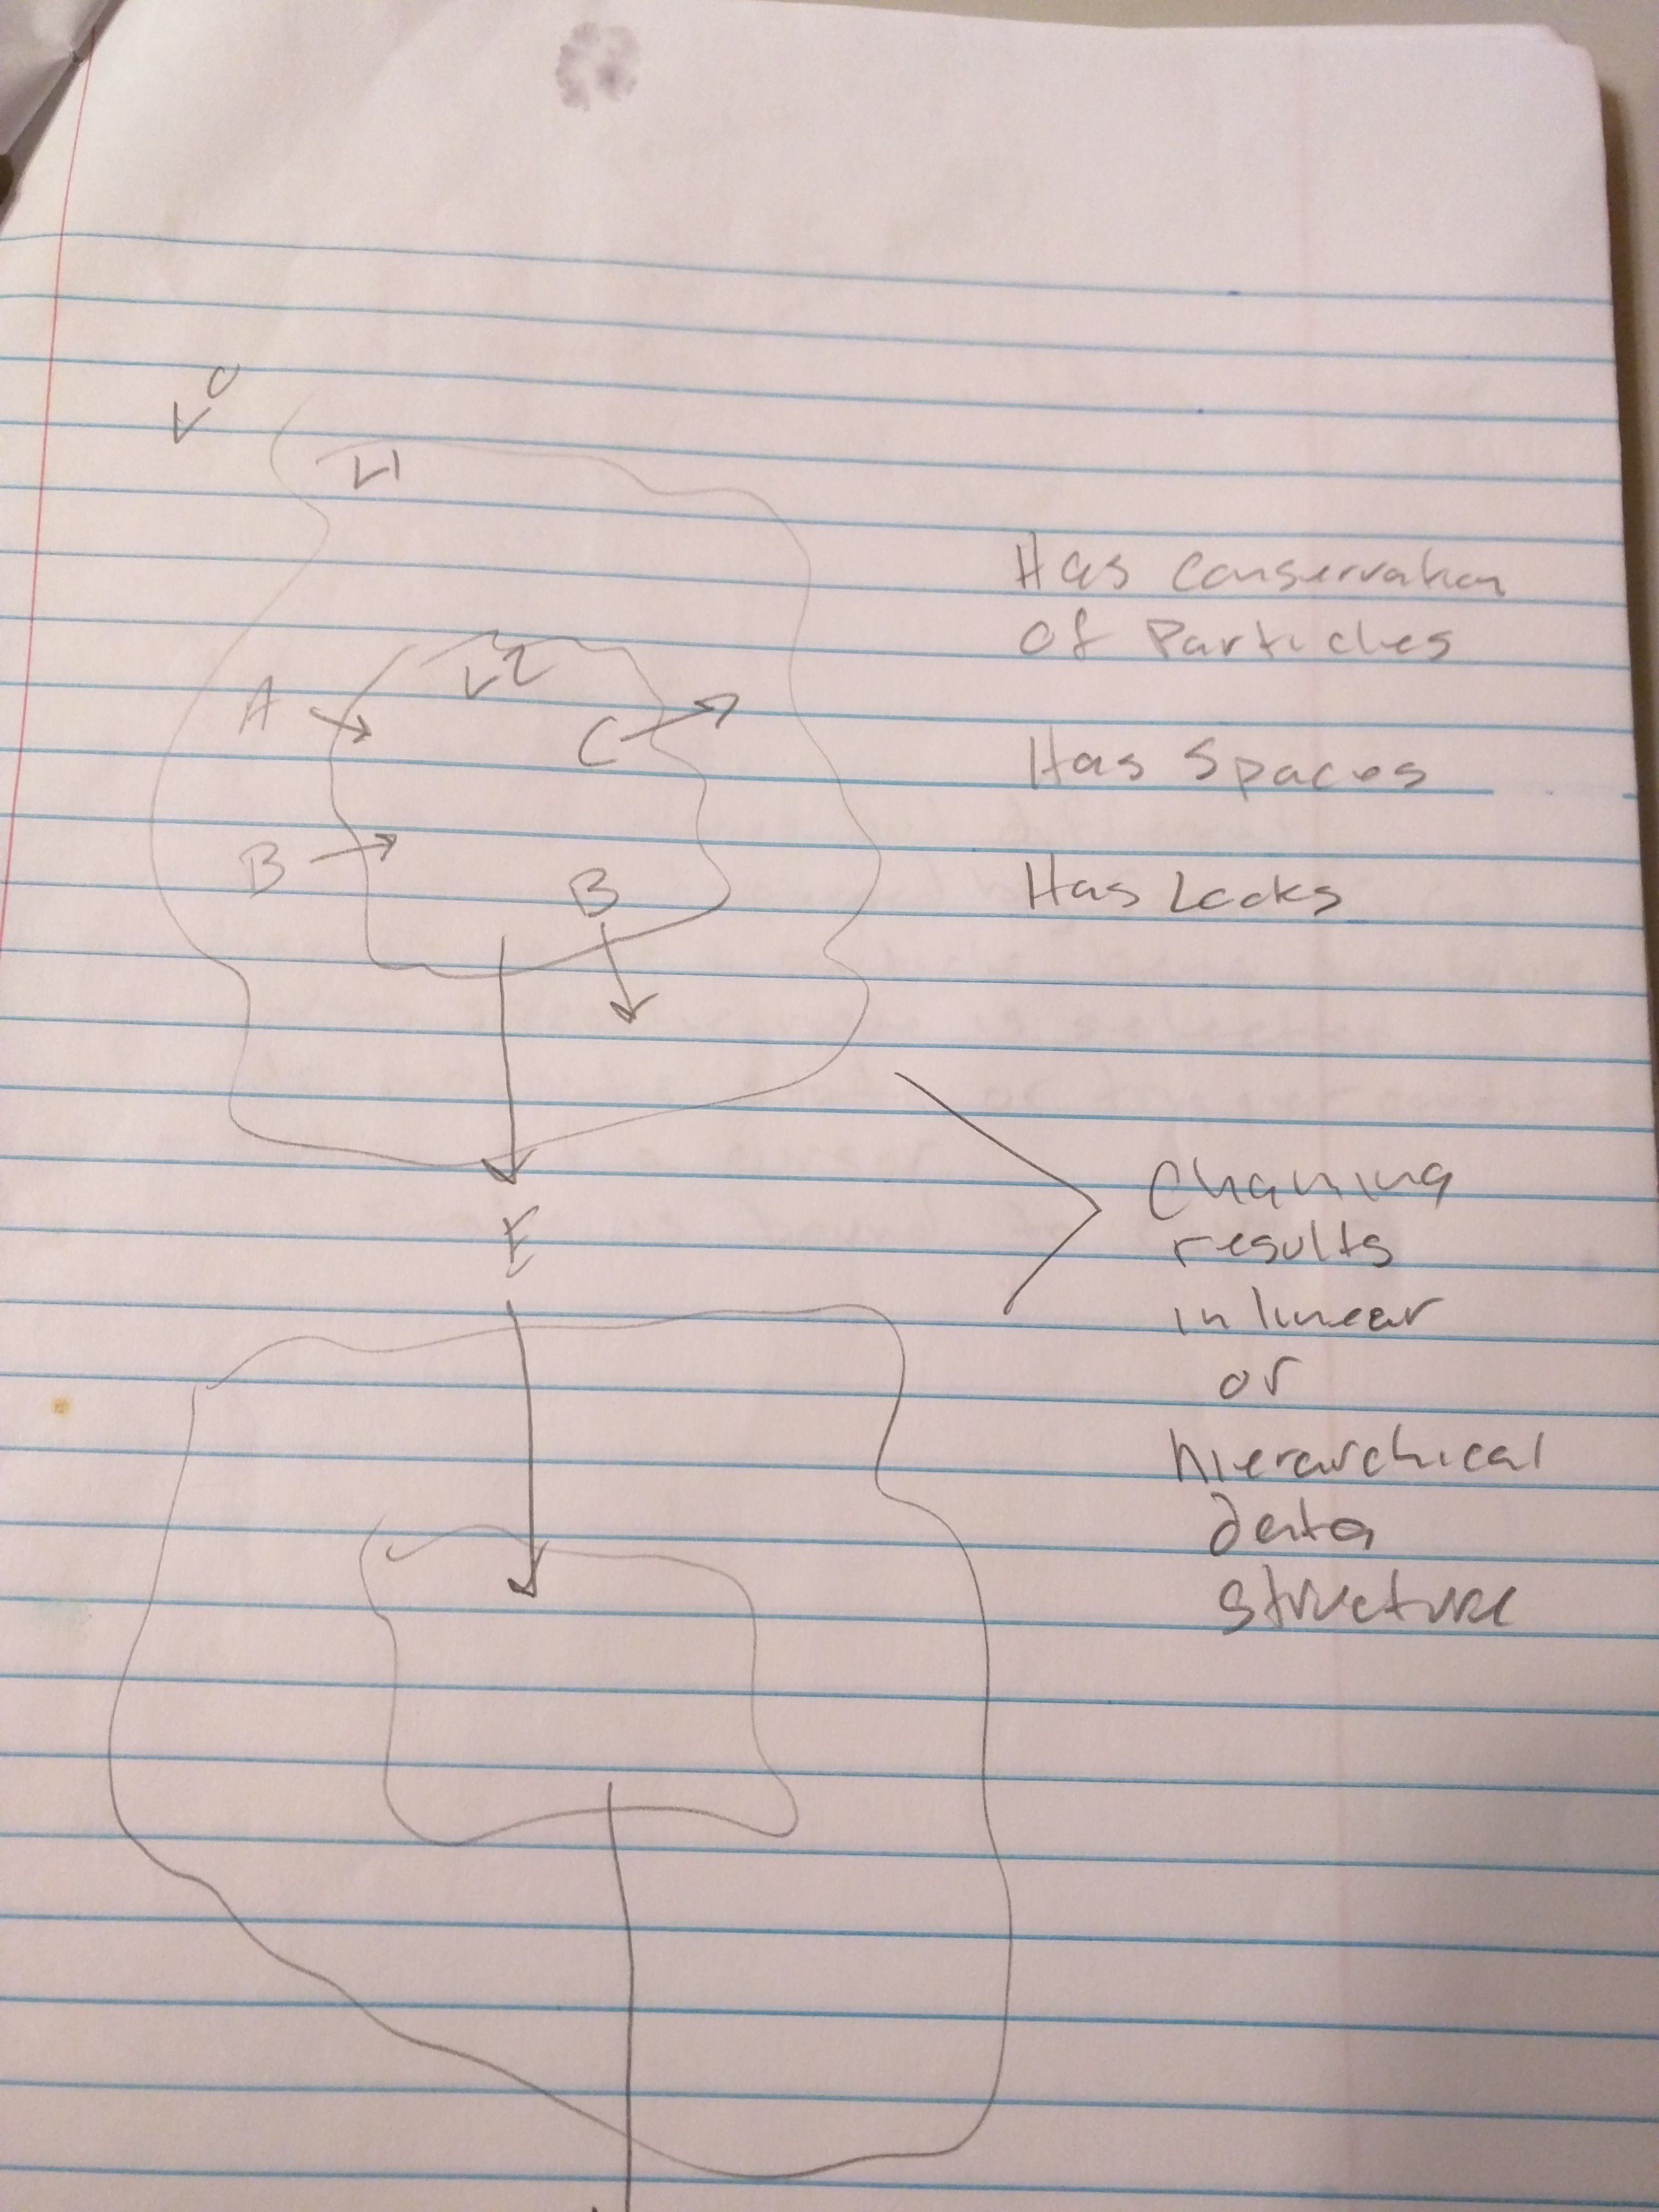 L0
L1
L2
A
C
B
B
E
Has Conservation
Of Particles
Has Spaces
Has Leaks
Chaining
results
in linear
or
hierarchical
data
structure